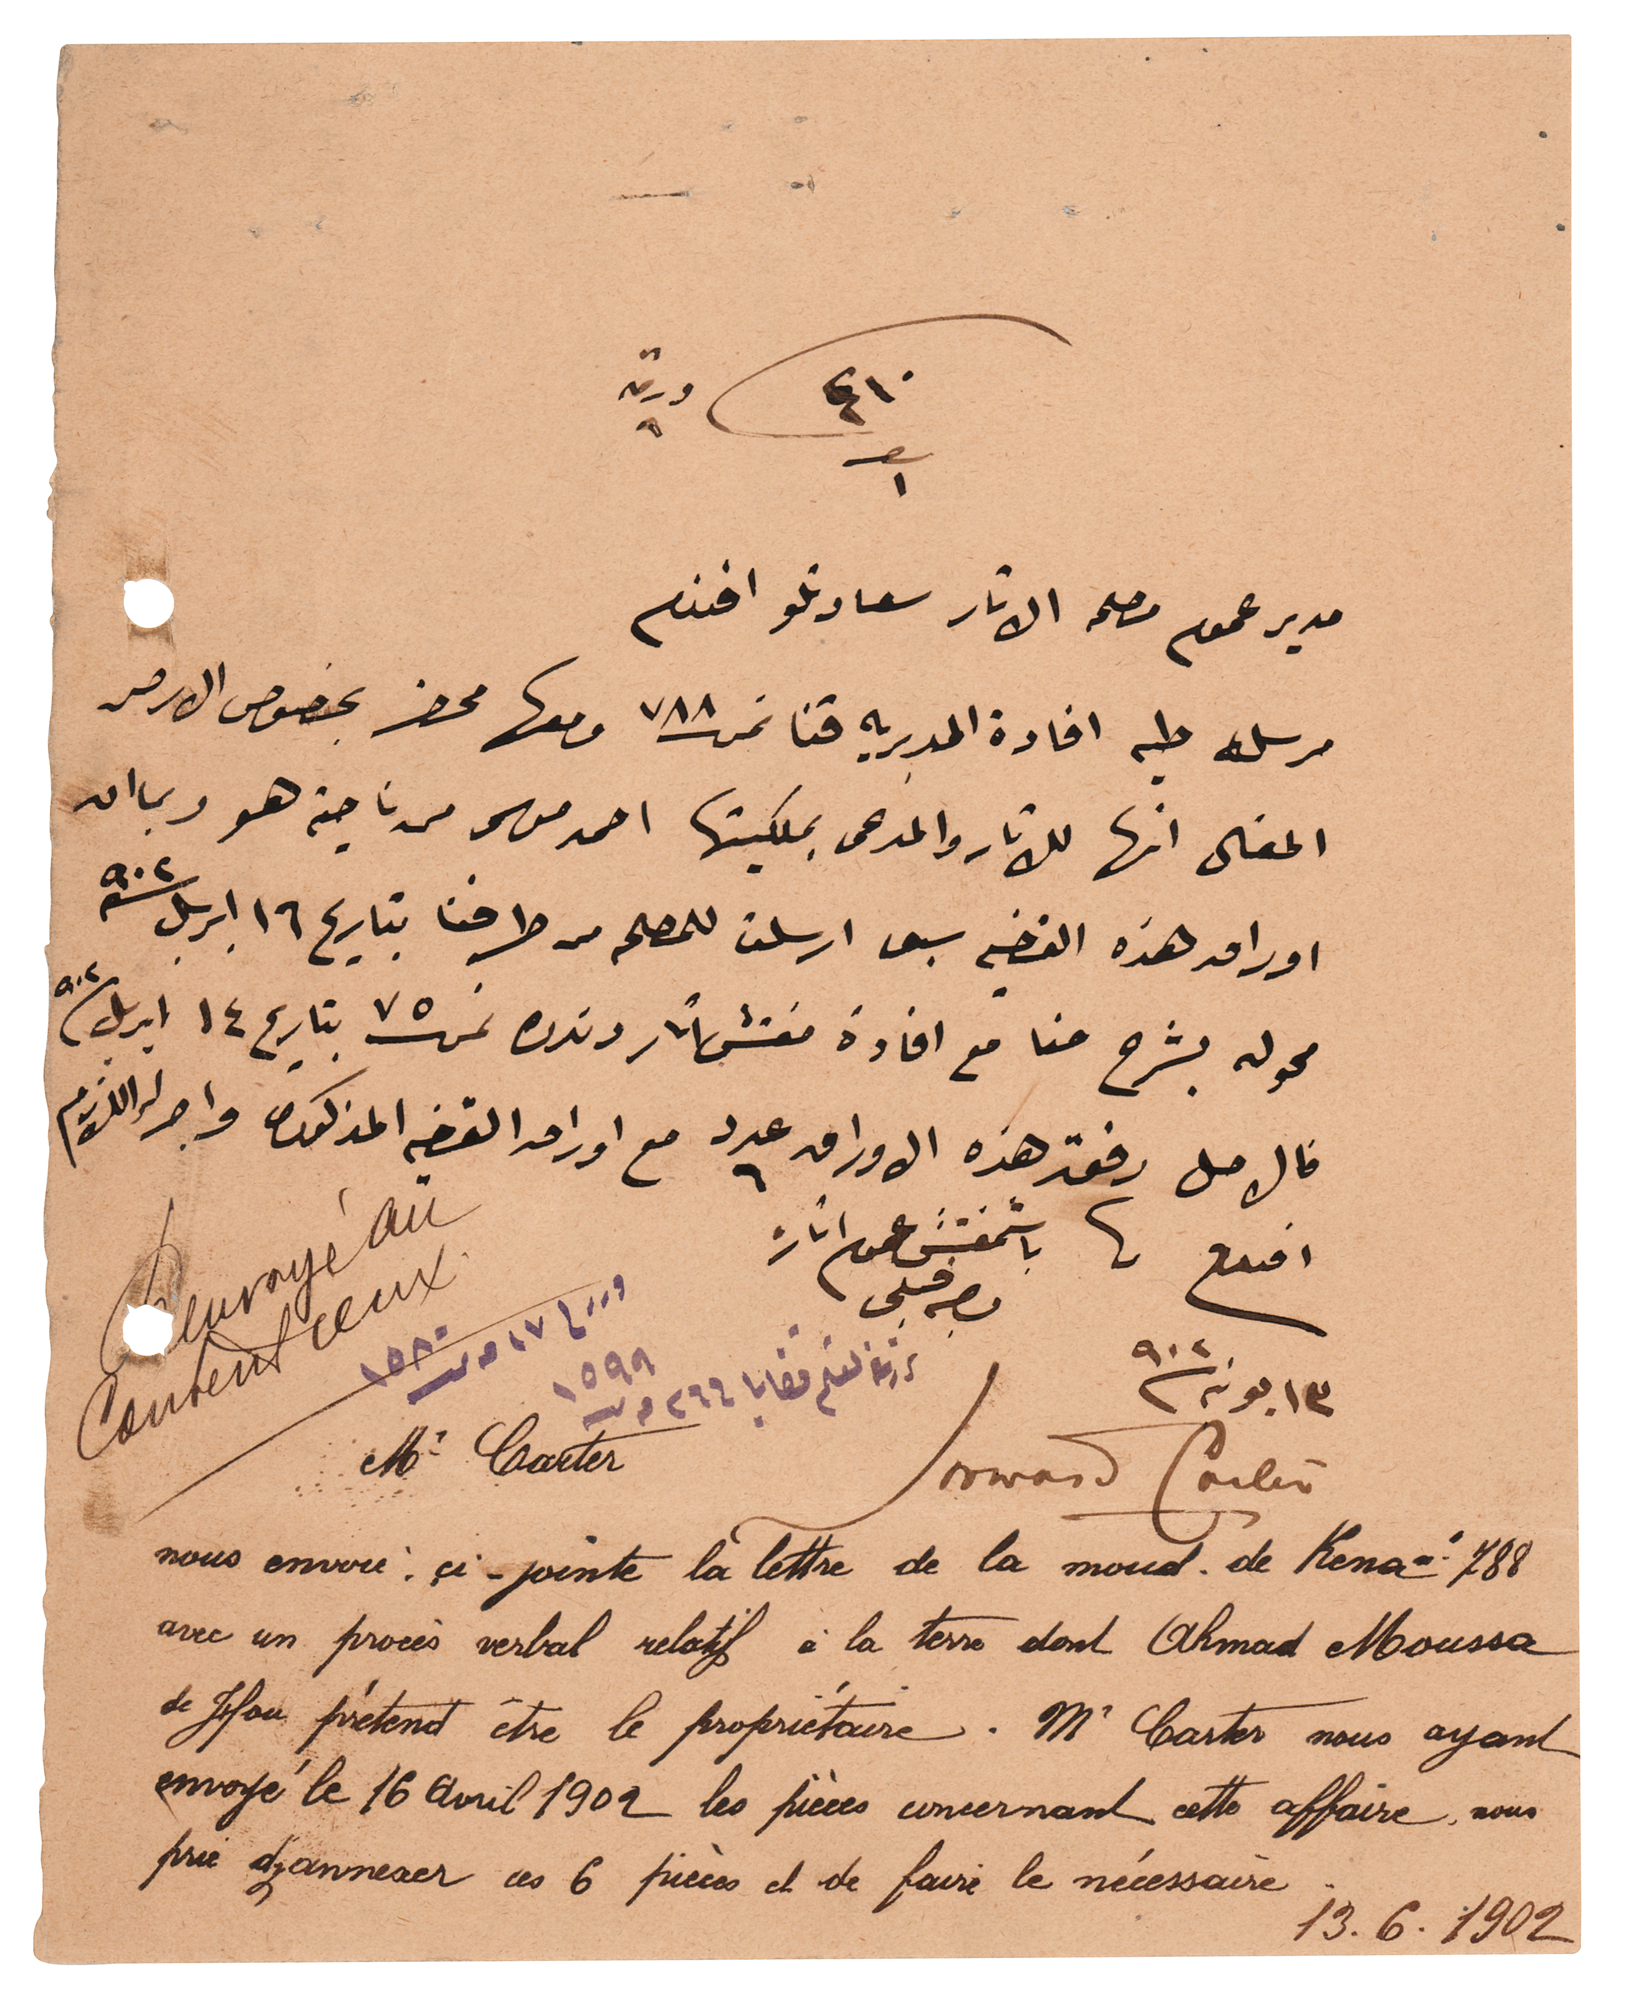 ٤١٠
ورقة
٦
١
مدير عموم مصلحة الاثار سعادتلو افندم
مرسله طيه افادة المديريه قنا نمرة ٧٨٨ ومعها محضر بخصوص الارض
المقال انها للاثار والمدعى بملكيتها احمد موسى من ناحية هو وبما ان
اوراق هذه القضيه سبق ارسلت للمصلحه من طرفنا بتاريخ ١٦ ابريل سنة ٩٠٢
محوله بشرح منا مع افادة مفتش اثار دندره نمرة ٧٥ بتاريخ ١٤ ابريل سنة ٩٠٢
فالامل رفق هذه الاوراق عدد ٦ مع اوراق القضيه المذكوره واجرا اللازم
افندم باشمفتش عموم اثار
وجه قبلي
١٣ يونيه سنة ٩٠٢
Howard Carter
Renvoyé au
Contentieux
١٥٨٠
١٥٩٩
قضايا ٢٦٦
Mr Carter
nous envoie ci-jointe la lettre de la moud. de Kena nº 788
avec un procès verbal relatif à la terre dont Ahmad Moussa
de Hou prétend être le propriétaire. Mr Carter nous ayant
envoyé le 16 Avril 1902 les pièces concernant cette affaire, nous
prie d'annexer ces 6 pièces et de faire le nécessaire.
13. 6. 1902